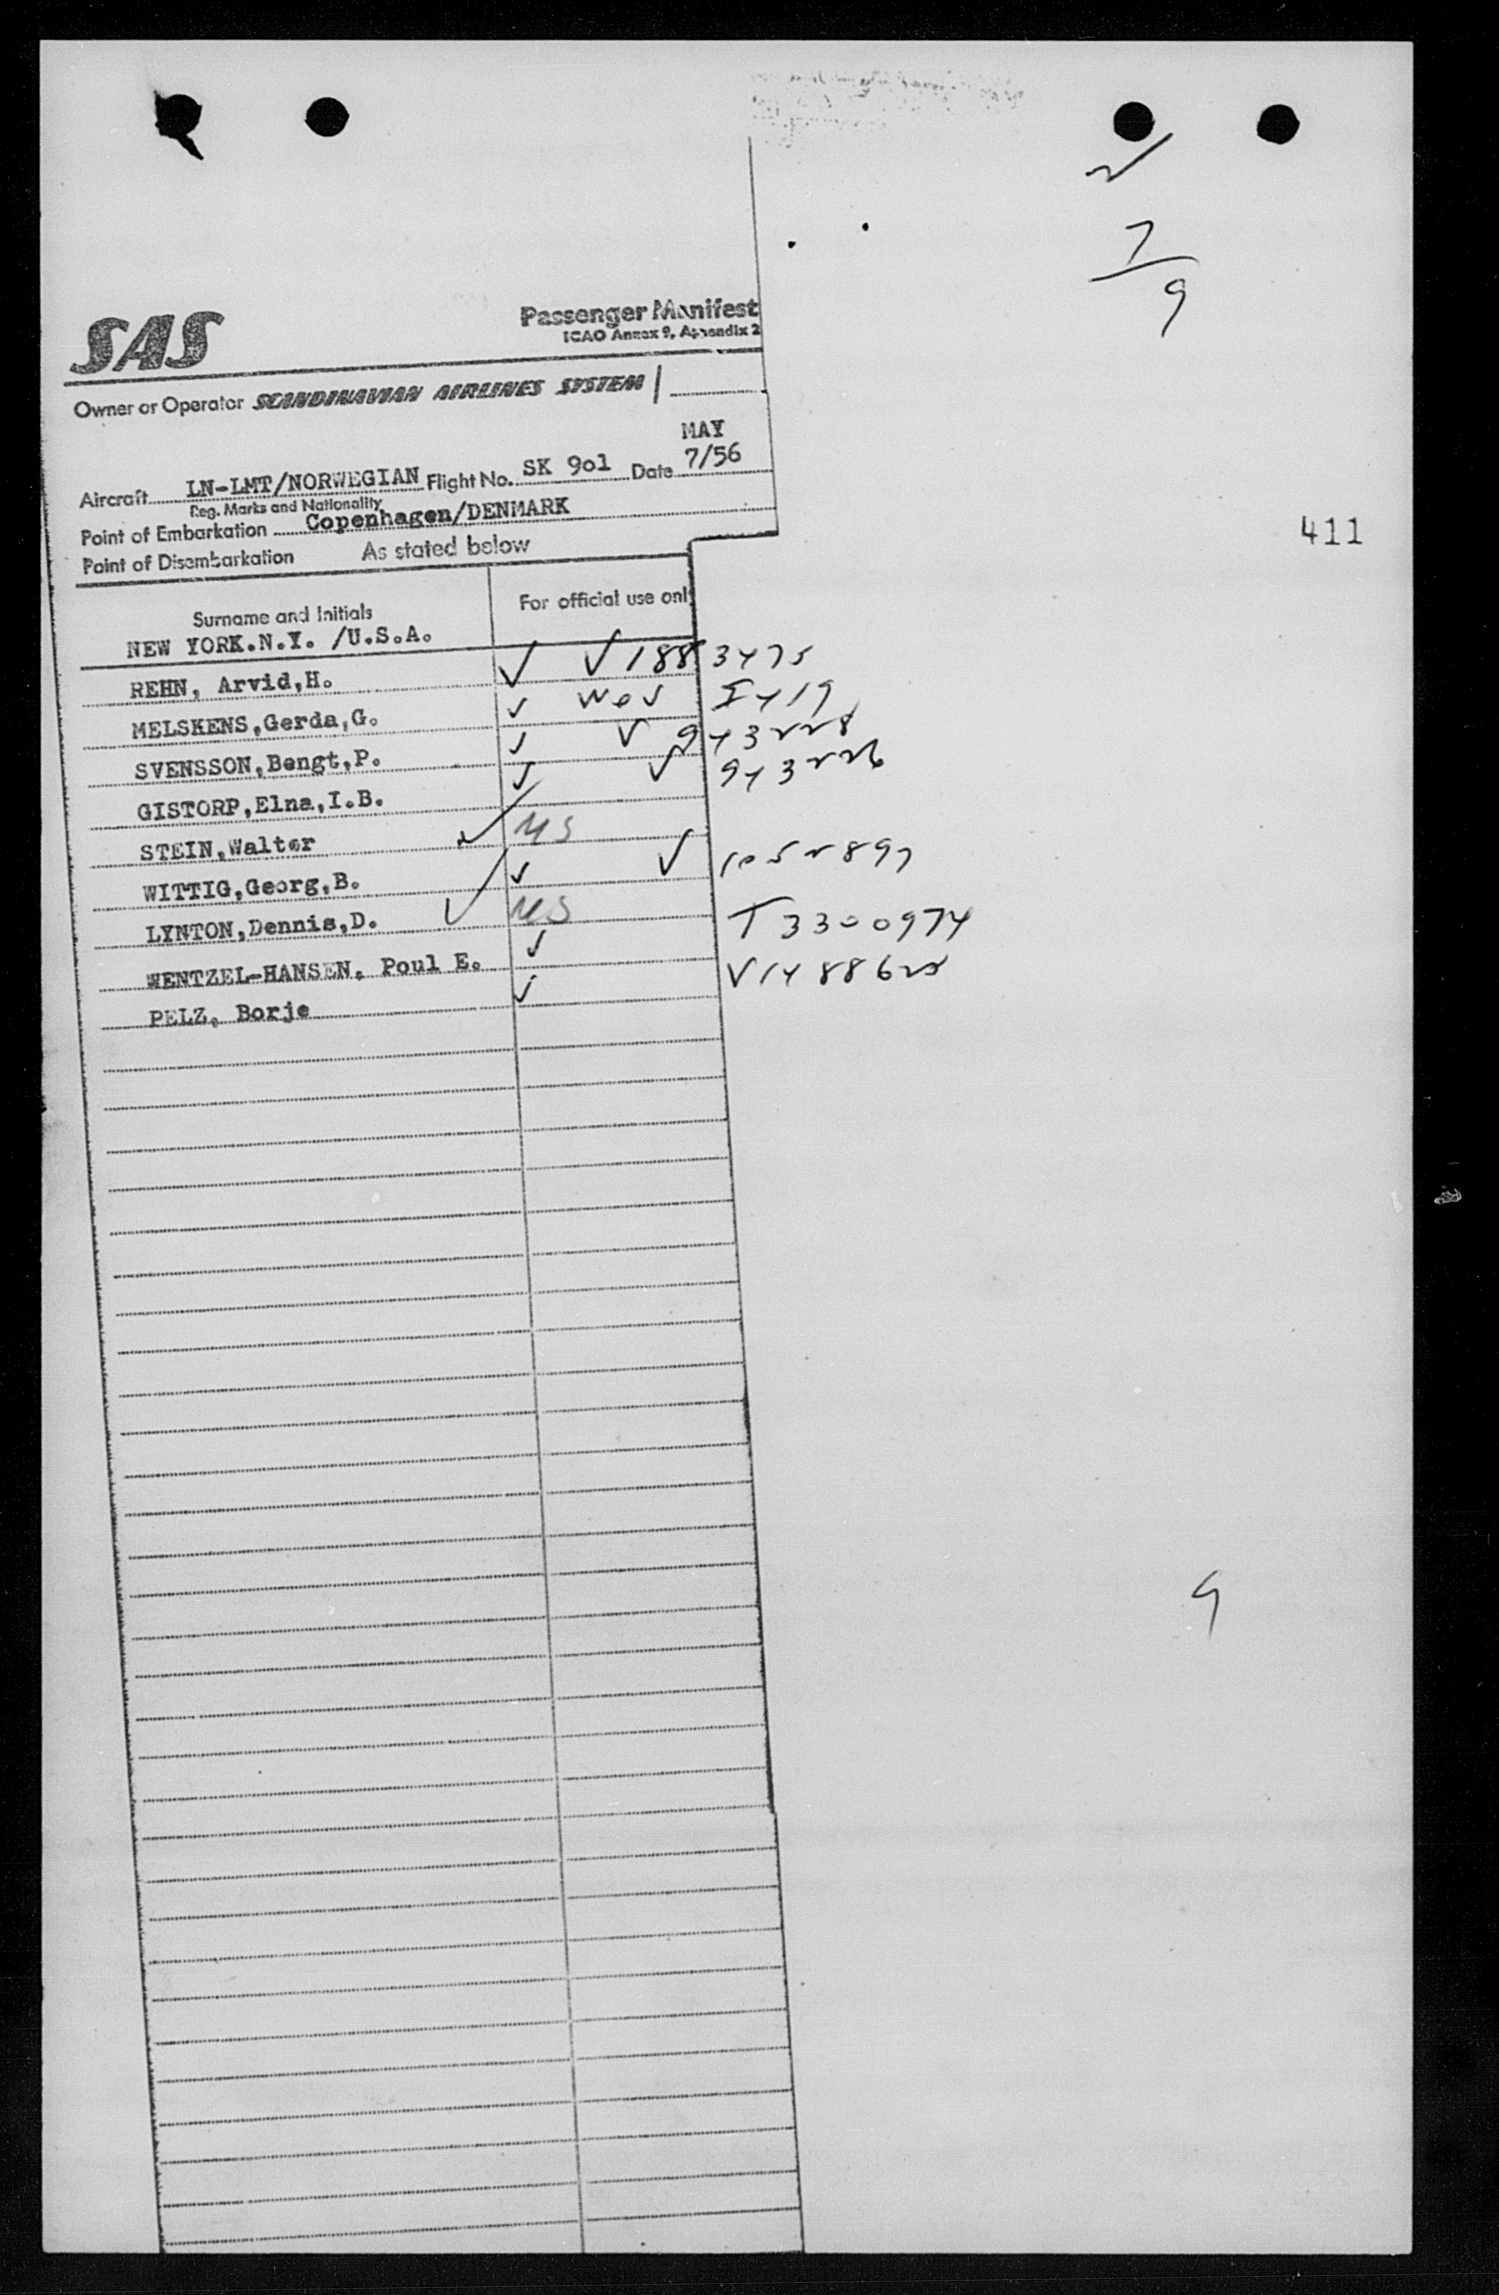 2/
7
9
SAS
Passenger Manifest
ICAO Annex 9, Appendix 2
Owner or Operator SCANDINAVIAN AIRLINES SYSTEM
MAY
Aircraft LN-LMT/NORWEGIAN Flight No. SK 9o1 Date 7/56
Reg. Marks and Nationality
Point of Embarkation Copenhagen/DENMARK
411
Point of Disembarkation As stated below
Surname and Initials For official use only
NEW YORK.N.Y. /U.S.A.
REHN, Arvid,H. ✓ ✓ 1883475
MELSKENS,Gerda,G. ✓ I419
SVENSSON,Bengt,P. ✓ ✓ 943228
GISTORP,Elna,I.B. ✓ ✓ 943226
STEIN,Walter ✓ US
WITTIG,Georg,B. ✓ ✓ 1052897
LYNTON,Dennis,D. ✓ US
WENTZEL-HANSEN, Poul E. ✓ T 3300974
PELZ, Borje ✓ V1488625
9